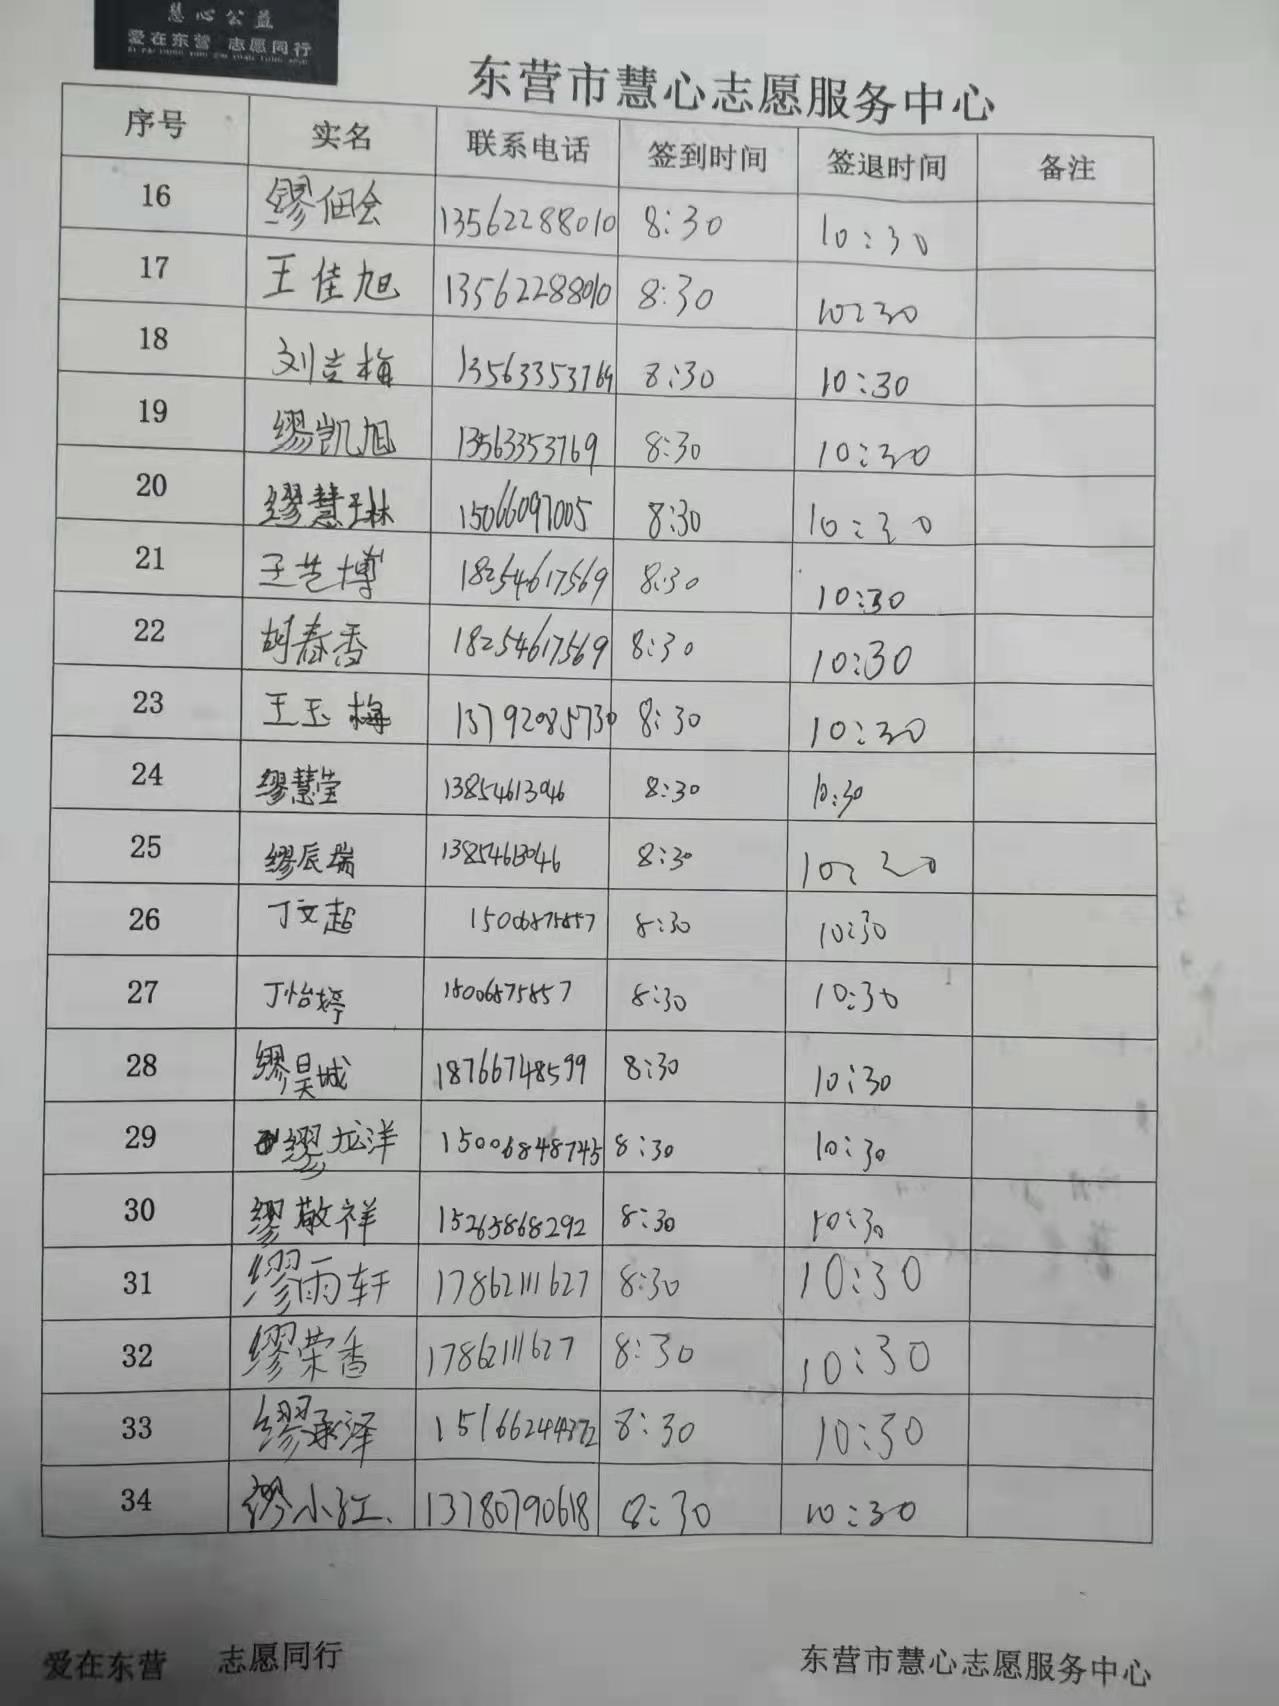 慧心公益
爱在东营 志愿同行
东营市慧心志愿服务中心
序号 实名 联系电话 签到时间 签退时间 备注
16 缪佃会 13562288010 8:30 10:30
17 王佳旭 13562288010 8:30 10:30
18 刘立梅 13563353769 8:30 10:30
19 缪凯旭 13563353769 8:30 10:30
20 缪慧琳 15066097005 8:30 10:30
21 王艺博 18254617569 8:30 10:30
22 胡春香 18254617569 8:30 10:30
23 王玉梅 13792085730 8:30 10:30
24 缪慧莹 13854613046 8:30 10:30
25 缪辰瑞 13854613046 8:30 10:30
26 丁文超 15006875857 8:30 10:30
27 丁怡婷 15006875857 8:30 10:30
28 缪昊城 18766748599 8:30 10:30
29 缪龙洋 15006848745 8:30 10:30
30 缪敬祥 15265868292 8:30 10:30
31 缪雨轩 17862111627 8:30 10:30
32 缪荣香 17862111627 8:30 10:30
33 缪承泽 15166244372 8:30 10:30
34 缪小红 13780790618 8:30 10:30
爱在东营 志愿同行 东营市慧心志愿服务中心